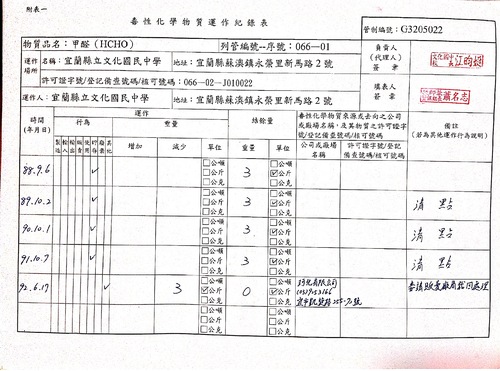 附表一
毒性化學物質運作紀錄表
管制編號：G3205022
物質品名：甲醛（HCHO）
列管編號--序號：066—01
負責人
（代理人）
簽章
運作場所
名稱：宜蘭縣立文化國民中學
地址：宜蘭縣蘇澳鎮永榮里新馬路2號
許可證字號/登記備查號碼/核可號碼：066—02—J010022
填表人
簽章
運作人：宜蘭縣立文化國民中學
地址：宜蘭縣蘇澳鎮永榮里新馬路2號
時間
（年月日）
運作
行為
重量
結餘量
毒性化學物質來源或去向之公司
或廠場名稱，及其物質之許可證字
號/登記備查號碼/核可號碼
備註
（若為其他運作行為說明）
製造 輸入 輸出 販賣 使用 貯存 廢棄 其他
增加 減少 單位 重量 單位
公司或廠場名稱
許可證字號/登記備查號碼/核可號碼
88.9.6 ✓ □公噸 □公斤 □公克 3 □公噸 ☑公斤 □公克
89.10.2 ✓ □公噸 □公斤 □公克 3 □公噸 ☑公斤 □公克 清點
90.10.1 ✓ □公噸 □公斤 □公克 3 □公噸 ☑公斤 □公克 清點
91.10.7 ✓ □公噸 □公斤 □公克 3 □公噸 ☑公斤 □公克 清點
92.6.17 ✓ 3 □公噸 ☑公斤 □公克 0 □公噸 ☑公斤 □公克